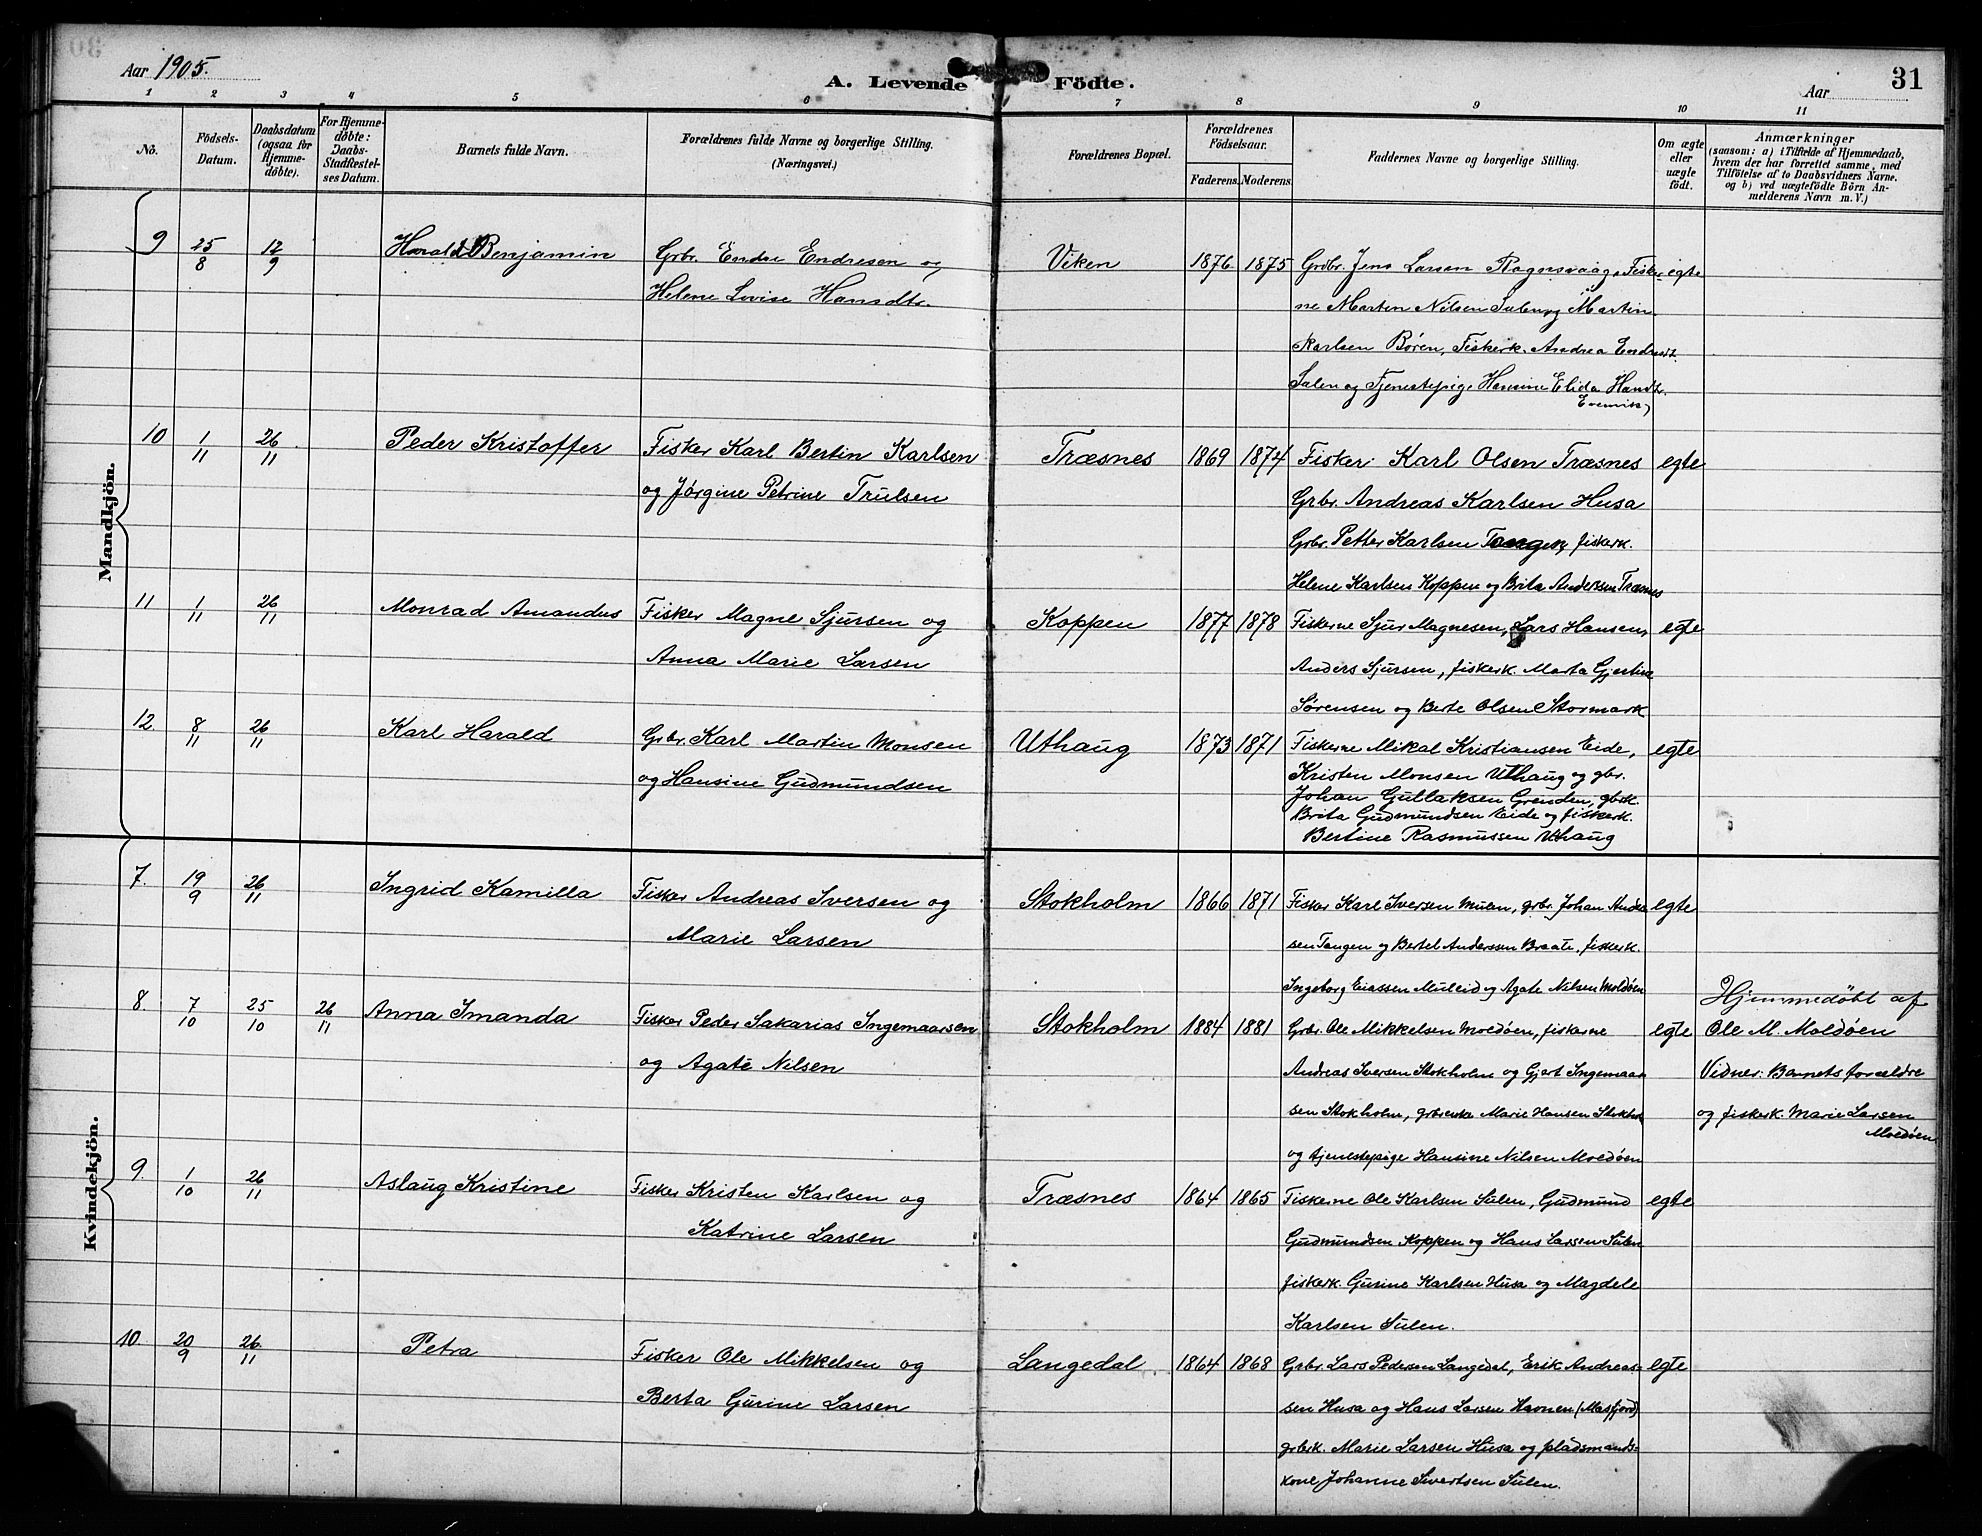 Aar 1905.
A. Levende Födte.
Aar
31
1 2 3 4 5 6 7 8 9 10 11
No.
Födsels-Datum.
Daabsdatum (ogsaa for Hjemmedöbte).
For Hjemmedöbte: Daabs-Stadfæstelses Datum.
Barnets fulde Navn.
Forældrenes fulde Navne og borgerlige Stilling. (Næringsvei.)
Forældrenes Bopæl.
Forældrenes Födselsaar.
Faderens. Moderens.
Faddernes Navne og borgerlige Stilling.
Om ægte eller uægte födt.
Anmærkninger
(saasom: a) i Tilfælde af Hjemmedaab,
hvem der har forrettet samme, med
Tilföielse af to Daabsvidners Navne.
og b) ved uægtefödte Börn An-
melderens Navn m.V.)
Mandkjön.
9 25/8 12/9 Harald Benjamin
Grbr. Endre Endresen og
Helene Lovise Hansdtr.
Viken 1876 1875
Grdbr. Jens Larsen Fisker-
ne Marten Nilsen Sulen og Martin
Karlsen Børen, Fiskerk. Andrea Endresdt.
Sulen og Tjenestepige Hansine Elida Hansdtr.
egte
10 1/11 26/11 Peder Kristoffer
Fisker Karl Bertin Karlsen
og Jørgine Petrine Trulsen
Træsnes 1869 1874
Fisker Karl Olsen Træsnes
Grbr. Andreas Karlsen Husa
Grbr. Petter Karlsen Tangen, fiskerk.
Helene Karlsen Koppen og Brita Andersen Træsnes
egte
11 1/11 26/11 Monrad Amandus
Fisker Magne Sjursen og
Anna Marie Larsen
Koppen 1877 1878
Fiskerne Sjur Magnesen, Lars Hansen,
Anders Sjursen, fiskerk. Marta Gjertine
Sørensen og Berte Olsen Stormark
egte
12. 8/11 26/11 Karl Harald
Grbr. Karl Martin Monsen
og Hansine Gudmundsen
Uthaug 1873 1871
Fiskerne Mikal Kristiansen Eide,
Kristen Monsen Uthaug og gbr.
Johan Gullaksen Grenden, gbrk.
Brita Gudmundsen Eide og fiskerk.
Bertine Rasmussen Uthaug
egte
Kvindekjön.
7. 19/9 26/11 Ingrid Kamilla
Fisker Andreas Iversen og
Marie Larsen
Stokholm 1866 1871
Fisker Karl Iversen Mulen, grbr. Johan Ander-
sen Tangen og Bertel Anderssen Braate, fiskerk.
Ingeborg Eiassen Muleid og Agate Nilsen Moldøen
egte
8. 7/10 25/10 26/11 Anna Imanda
Fisker Peder Sakarias Ingemaarsen
og Agate Nilsen
Stokholm 1884 1881
Grbr. Ole Mikkelsen Moldøen, fiskerne
Andreas Iversen Stokholm og Gjert Ingemaar-
sen Stokholm, grbrenke Marie Hansen Stokhol
og tjenestepige Hansine Nilsen Moldøen
egte
Hjemmedøbt af
Ole M. Moldøen
Vidner: Barnets forældre
og fiskerk. Marie Larsen
Moldøen
9. 1/10 26/11 Aslaug Kristine
Fisker Kristen Karlsen og
Katrine Larsen
Træsnes 1864 1865
Fiskerne Ole Karlsen Sulen, Gudmund
Gudmundsen Koppen og Hans Larsen Sulen
fiskerk. Gurine Karlsen Husa og Magdele
Karlsen Sulen.
egte
10. 20/9 26/11 Petra
Fisker Ole Mikkelsen og
Berta Gurine Larsen
Langedal. 1864 1868
Grbr. Lars Pedersen Langedal, Erik Andreas-
sen Husa og Hans Larsen Havnen (Masfjord)
grbrk. Marie Larsen Husa og pladsmands-
kone Johanne Sivertsen Sulen.
egte